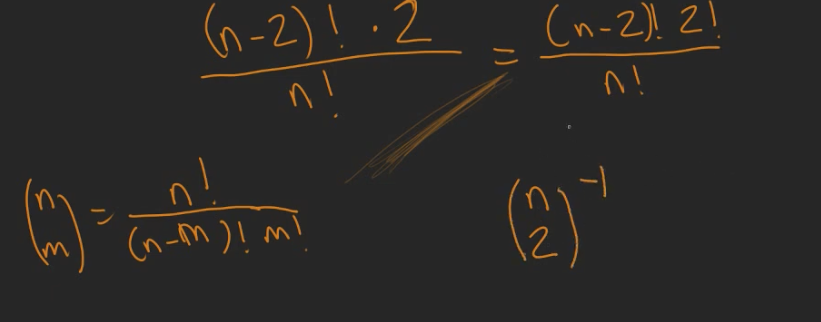 \frac{(n-2)! \cdot 2}{n!} = \frac{(n-2)! 2!}{n!}
\binom{n}{m} = \frac{n!}{(n-m)! m!} \binom{n}{2}^{-1}